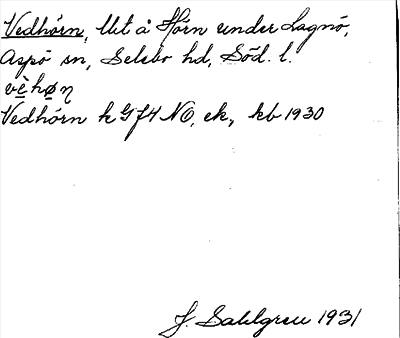 Vedhörn, Ut å Hörn under Lagnö,
Aspö sn, Selebo hd, Söd. l.
vèhøn
Vedhörn k GJ4 NO, ek, kb 1930
J. Sahlgren 1931